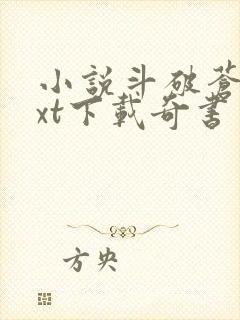 小說斗破蒼
xt下載奇書
方央